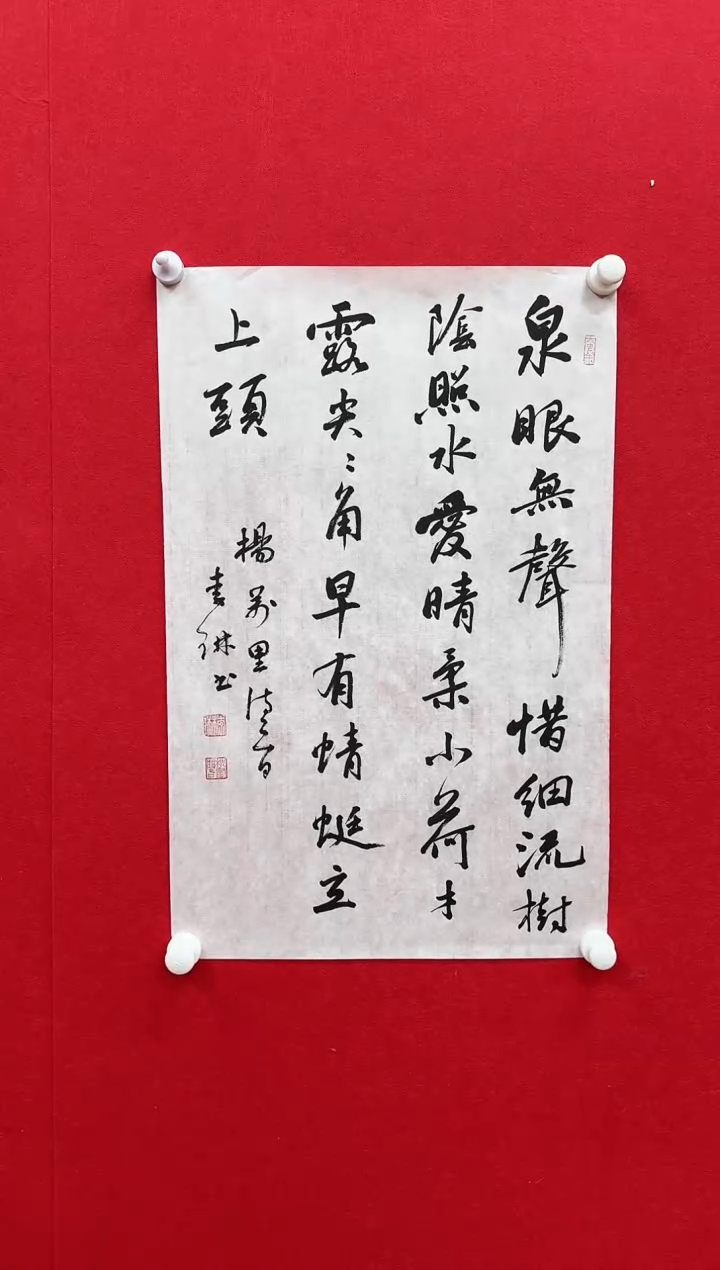 泉眼無聲惜細流樹
陰照水愛晴柔小荷才
露尖〻角早有蜻蜓立
上頭
楊萬里詩一首
琳书